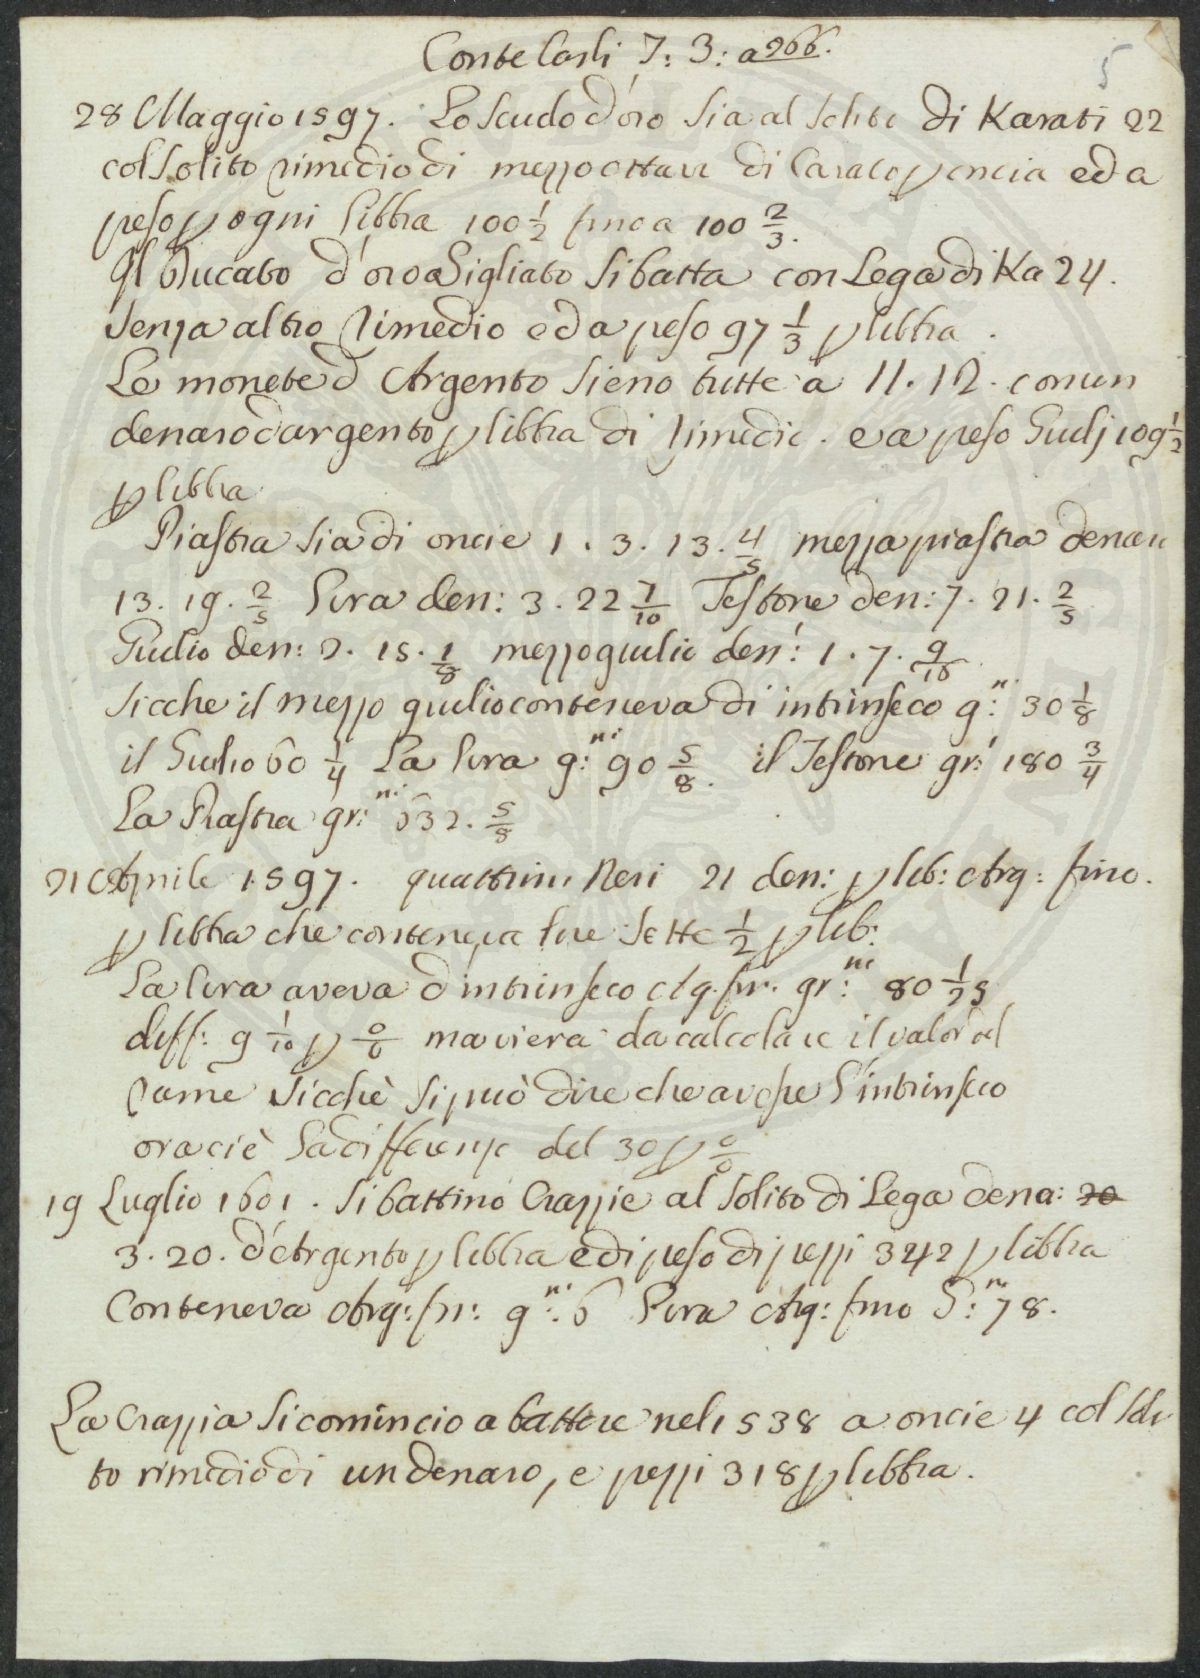 Conte Carli T: 3: a 266.
5
28 Maggio 1597. Lo Scudo d'oro Sia al Solito di Karati 22
col Solito rimedio di mezzo ottavo di Carato p oncia ed a
peso p ogni libbra 100 1/2 fino a 100 2/3.
Il Ducato d'oro a Sigliato Si batta con Lega di Ka 24.
Senza altro rimedio ed a peso 97 1/3 p libbra.
Le monete d'Argento Sieno tutte a 11.12. con un
denaro d'argento p libbra di rimedio. e a peso Giulj 109 1/2
p libbra
Piastra Sia di oncie 1. 3. 13. 4/5 mezza piastra denari
13. 19. 2/5 Lira den: 3. 22 7/10 Testone den: 7. 21. 2/5
Giulio den: 2. 15. 1/8 mezzo giulio den: 1. 7. 9/16
Sicche il mezzo giulio conteneva di intrinseco g.ni 30 1/8
il Giulio 60 1/4 La Lira g:ni 90 5/8. il Testone gr: 180 3/4
La Piastra gr:ni 632. 5/8
21 Aprile 1597. quattrini Neri 21 den: p lib: Arg: fino.
p libbra che conteneva lire Sette 1/2 p lib:
La lira aveva d'intrinseco Arg. fin. gr:ni 80 1/25
diff: 9 1/10 p 0/0 ma viera da calcolare il valor del
rame Sicchè Si può dire che avesse l'intrinseco
ora ci è La differenza del 30 p 0/0
19 Luglio 1601. Si battino Crazzie al Solito di Lega dena: 20
3. 20. d'Argento p libbra e di peso di pezzi 342 p libbra
Conteneva Arg: fin: g:ni 6 Lira Arg: fino G:ni 78.
La Crazzia Si comincio a battere nel 1538 a oncie 4 col Soli
to rimedio di un denaro, e pezzi 318 p libbra.